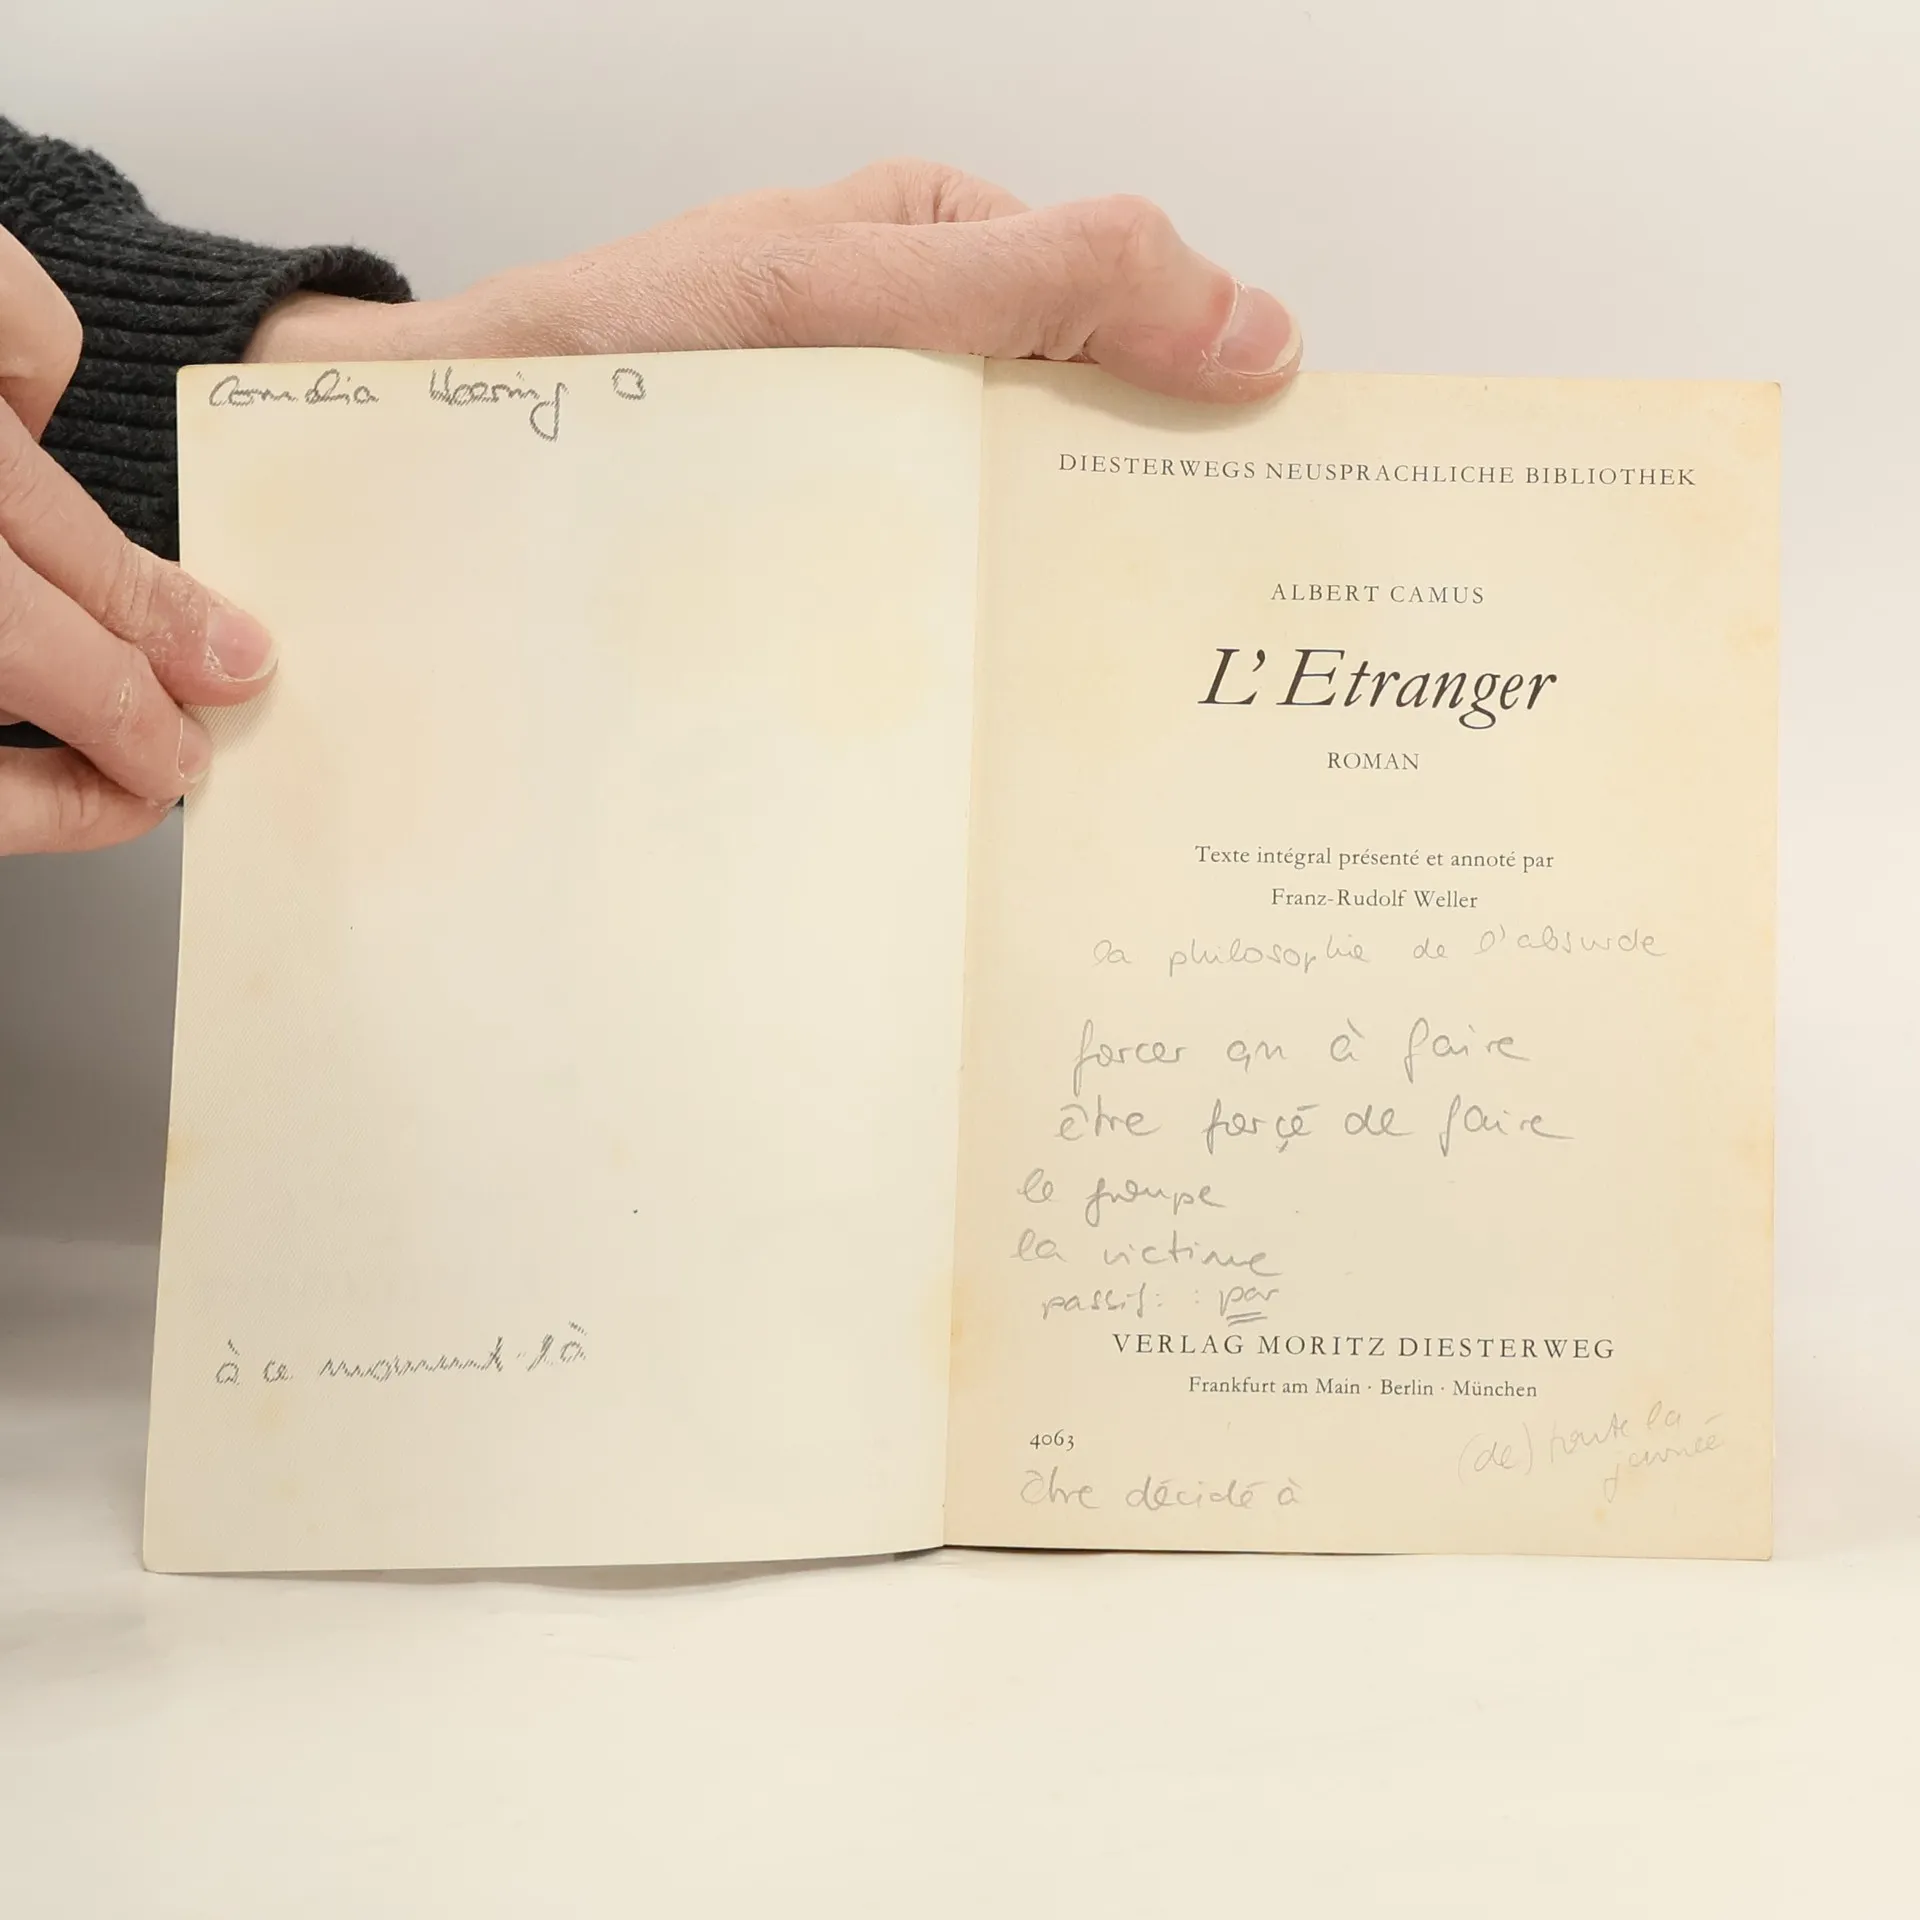 Cornelia
à ce moment-là
DIESTERWEGS NEUSPRACHLICHE BIBLIOTHEK
ALBERT CAMUS
L'Etranger
ROMAN
Texte intégral présenté et annoté par
Franz-Rudolf Weller
la philosophie de l'absurde
forcer qn à faire
être forçé de faire
le groupe
la victime
passif : par
VERLAG MORITZ DIESTERWEG
Frankfurt am Main · Berlin · München
4063
(de) toute la
journée
être décidé à